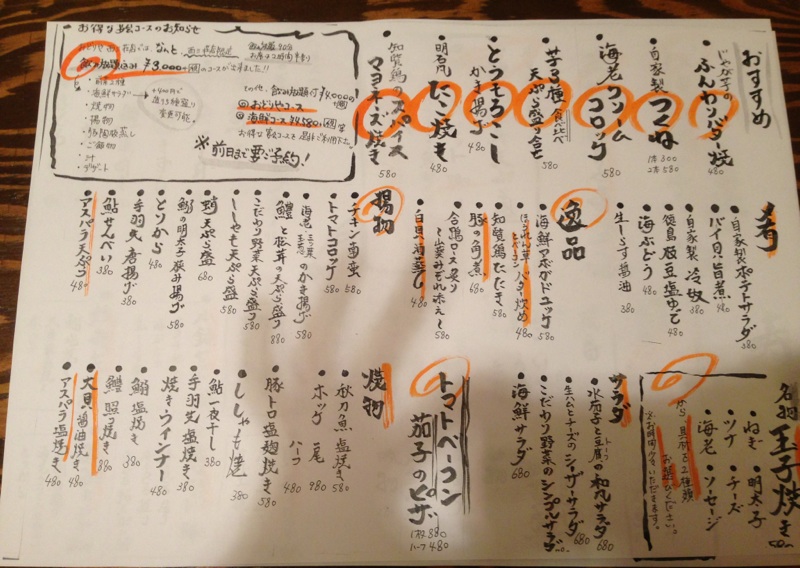 おすすめ
じゃが芋の
ふんわりバター焼
480
自家製
つくね
1本 300
2本 580
海老クリーム
コロッケ
580
芋3種
食べ比べ
天ぷら盛り合せ
580
とうもろこし
かき揚げ
480
明石風
たこ焼き
480
知覧鶏のスパイス
マヨネーズ焼き
580
お得な宴会コースのお知らせ
飲み放題込み ¥3,000
のコースが出来ました!!
・前菜2種
・海鮮サラダ
・焼物
・揚物
・ご飯物
・汁
・デザート
その他、飲み放題付¥4,000の
◎おどりやコース
◎海鮮コース ¥4,580
※前日まで要ご予約!
・自家製ポテトサラダ
380
・バイ貝旨煮
480
・自家製 冷奴
380
・枝豆塩ゆで
480
・海ぶどう
480
・生しらす醤油
380
逸品
・海鮮アボガドユッケ
580
・ほうれん草とベーコン バター炒め
480
・知覧鶏たたき
580
・豚の角煮
480
・合鴨ロース炙り
〜山葵みぞれ添え〜
580
・白貝酒蒸し
480
揚物
・チキン南蛮
580
・トマトコロッケ
480
・海老 三つ葉 玉葱 のかき揚げ
580
・鱧と松茸の天ぷら盛り
880
・こだわり野菜天ぷら盛り
580
・ししゃも天ぷら盛
580
・蛸天ぷら盛
680
・鰯の明太子挟み揚げ
580
・とりから
480
・手羽先唐揚げ
380
・鮎せんべい
380
・アスパラ天ぷら
480
名物 玉子焼き
・ねぎ
・明太子
・ツナ
・チーズ
・海老
・ソーセージ
から具材を2種類
お選びください。
※お時間少々いただきます。
サラダ
・水茄子と豆腐の和風サラダ
680
・生ハムとチーズのシーザーサラダ
680
・こだわり野菜のシンプルサラダ
・海鮮サラダ
680
トマトベーコン
茄子のピザ
ハーフ 480
焼物
・秋刀魚 塩焼き
580
・ホッケ
一尾
480
ハーフ
480
・豚トロ塩麹焼き
580
・ししゃも焼
380
・鮎一夜干し
380
・手羽先塩焼き
380
・焼きウインナー
480
・鰯塩焼き
380
・鱧照り焼き
880
・大貝醤油焼き
480
・アスパラ塩焼き
480